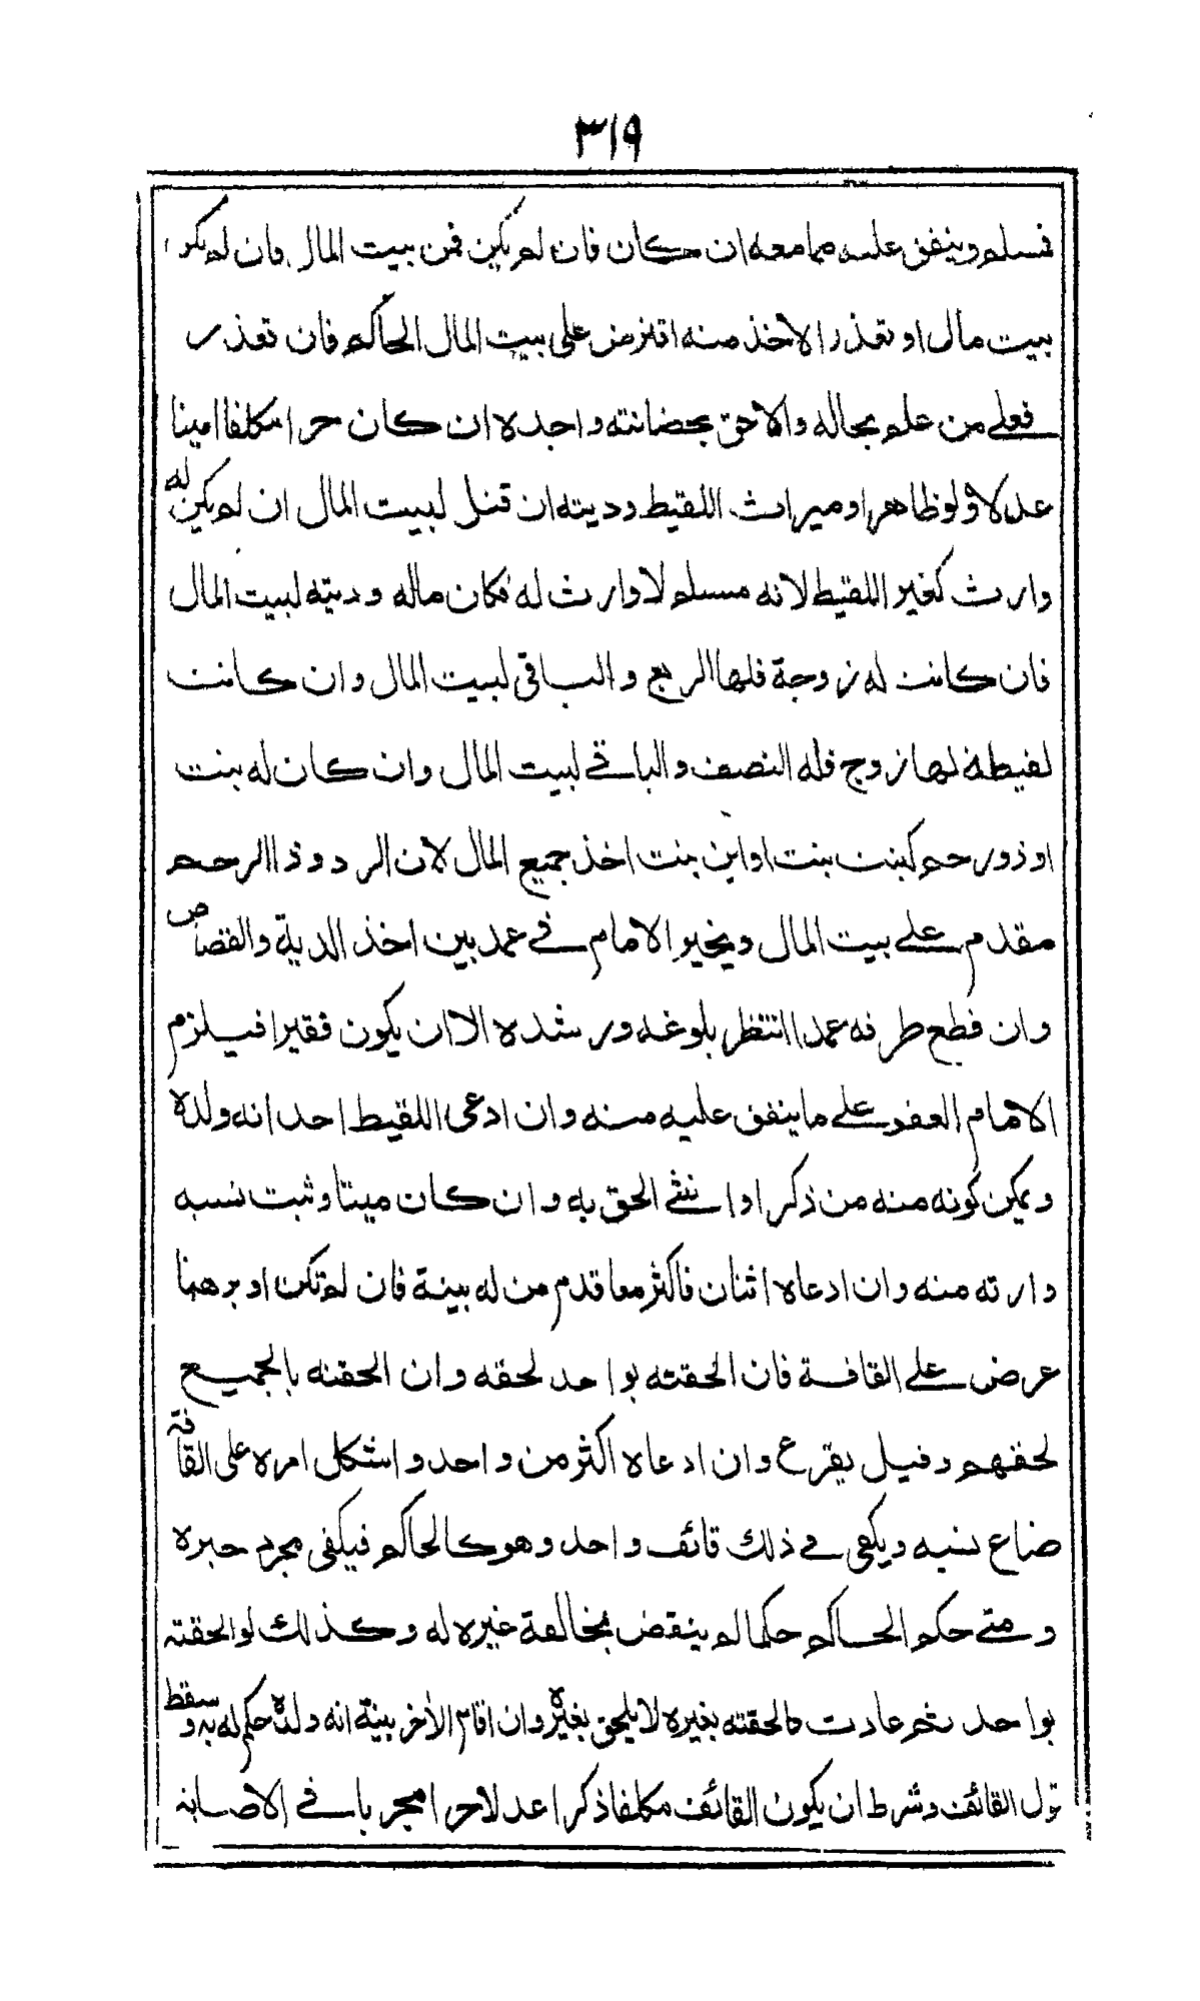 ٣١٩
فمسلم وينفق عليه مما معه ان كان فان لم يكن فمن بيت المال فان لم يكن
بيت مال او تعذر الاخذ منه اقترض على بيت المال الحاكم فان تعذر
فعلى من علم بحاله والاحق بحضانته واجده ان كان حرا مكلفا امينا
عدلا ولو ظاهرا وميراث اللقيط وديته ان قتل لبيت المال ان لم يكن له
وارث كغير اللقيط لانه مسلم لا وارث له فكان ماله وديته لبيت المال
فان كانت له زوجة فلها الربع والباقى لبيت المال وان كانت
لقيطة لها زوج فله النصف والباقي لبيت المال وان كان له بنت
او ذو رحم كبنت بنت او ابن بنت اخذ جميع المال لان الرد وذا الرحم
مقدم على بيت المال ويخير الامام في عمد بين اخذ الدية والقصاص
وان قطع طرفه عمدا انتظر بلوغه ورشده الا ان يكون فقيرا فيلزم
الامام العفو على ما ينفق عليه منه وان ادعى اللقيط احد انه ولده
ويمكن كونه منه من ذكر او انثى الحق به وان كان ميتا وثبت نسبه
وارثه منه وان ادعاه اثنان فاكثر معا قدم من له بينة فان لم تكن او برهنا
عرض على القافة فان الحقته بواحد لحقه وان الحقته بالجميع
لحقهم وقيل يقرع وان ادعاه اكثر من واحد واشكل امره على القافة
ضاع نسبه ويكفى في ذلك قائف واحد وهو كالحاكم فيكفى مجرد خبره
ومتى حكم الحاكم حكما لم ينقض بمخالفة غيره له وكذلك لو الحقته
بواحد ثم عادت فالحقته بغيره لا يلحق بغيره وان اقام الآخر بينة انه ولده حكم له به وسقط
قول القائف وشرط ان يكون القائف مكلفا ذكرا عدلا حرا مجربا في الاصابة